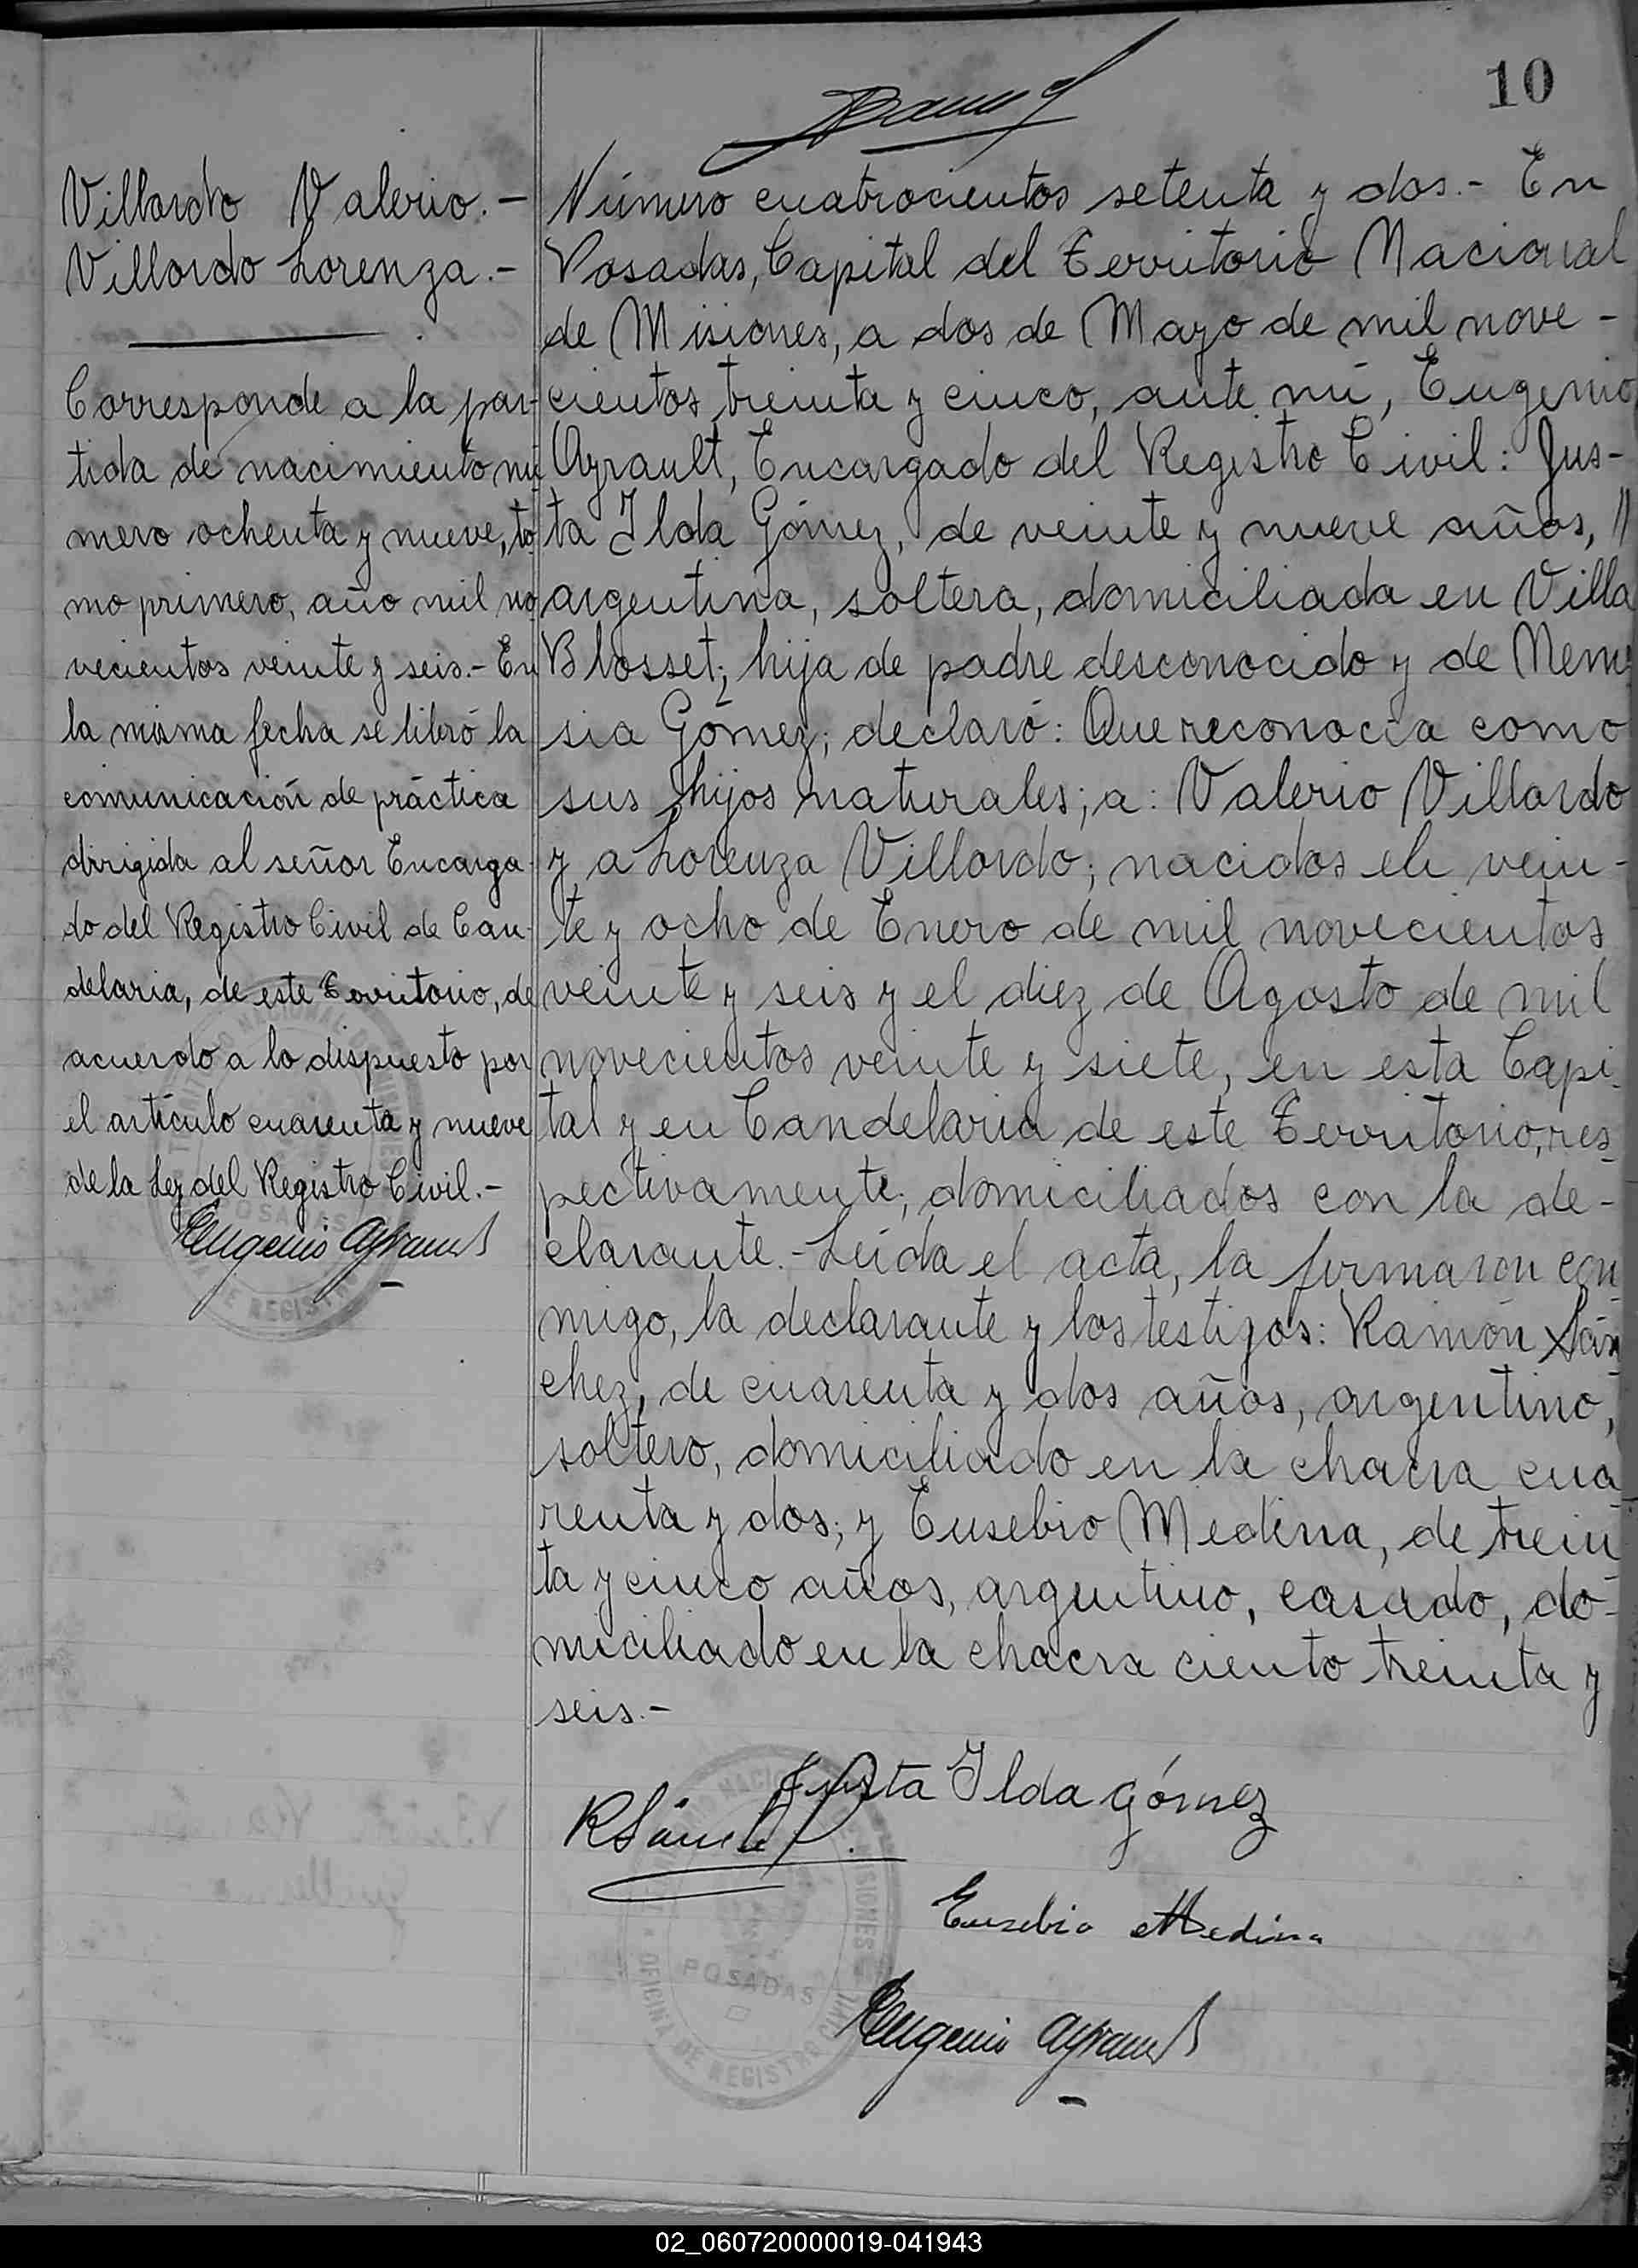 10
Villordo Valerio.-
Villordo Lorenza.-
Corresponde a la par-
tida de nacimiento nú
mero ochenta y nueve, to
mo primero, año mil no
vecientos veinte y seis.- En
la misma fecha se libró la
comunicación de práctica
dirigida al señor Encarga-
do del Registro Civil de Can-
delaria, de este Territorio, de
acuerdo a lo dispuesto por
el artículo cuarenta y nueve
de la Ley del Registro Civil.-
Eugenio Ayrault
Número cuatrocientos setenta y dos.- En
Posadas, Capital del Territorio Nacional
de Misiones, a dos de Mayo de mil nove-
cientos treinta y cinco, ante mí, Eugenio
Ayrault, Encargado del Registro Civil: Jus-
ta Ilda Gómez, de veinte y nueve años, //
argentina, soltera, domiciliada en Villa
Blosset; hija de padre desconocido y de Neme
sia Gómez; declaró: Que reconocía como
sus hijos naturales; a: Valerio Villordo
y a Lorenza Villordo; nacidos el vein-
te y ocho de Enero de mil novecientos
veinte y seis y el diez de Agosto de mil
novecientos veinte y siete, en esta Capi-
tal y en Candelaria de este Territorio, res-
pectivamente; domiciliados con la de-
clarante.- Leída el acta, la firmaron con
migo, la declarante y los testigos: Ramón Sán
chez, de cuarenta y dos años, argentino,
soltero, domiciliado en la chacra cua
renta y dos; y Eusebio Medina, de trein
ta y cinco años, argentino, casado, do-
miciliado en la chacra ciento treinta y
seis.-
Justa Ilda Gómez
R Sánchez
Eusebio Medina
POSADAS
OFICINA DE REGISTRO CIVIL
Eugenio Ayrault
02_060720000019-041943